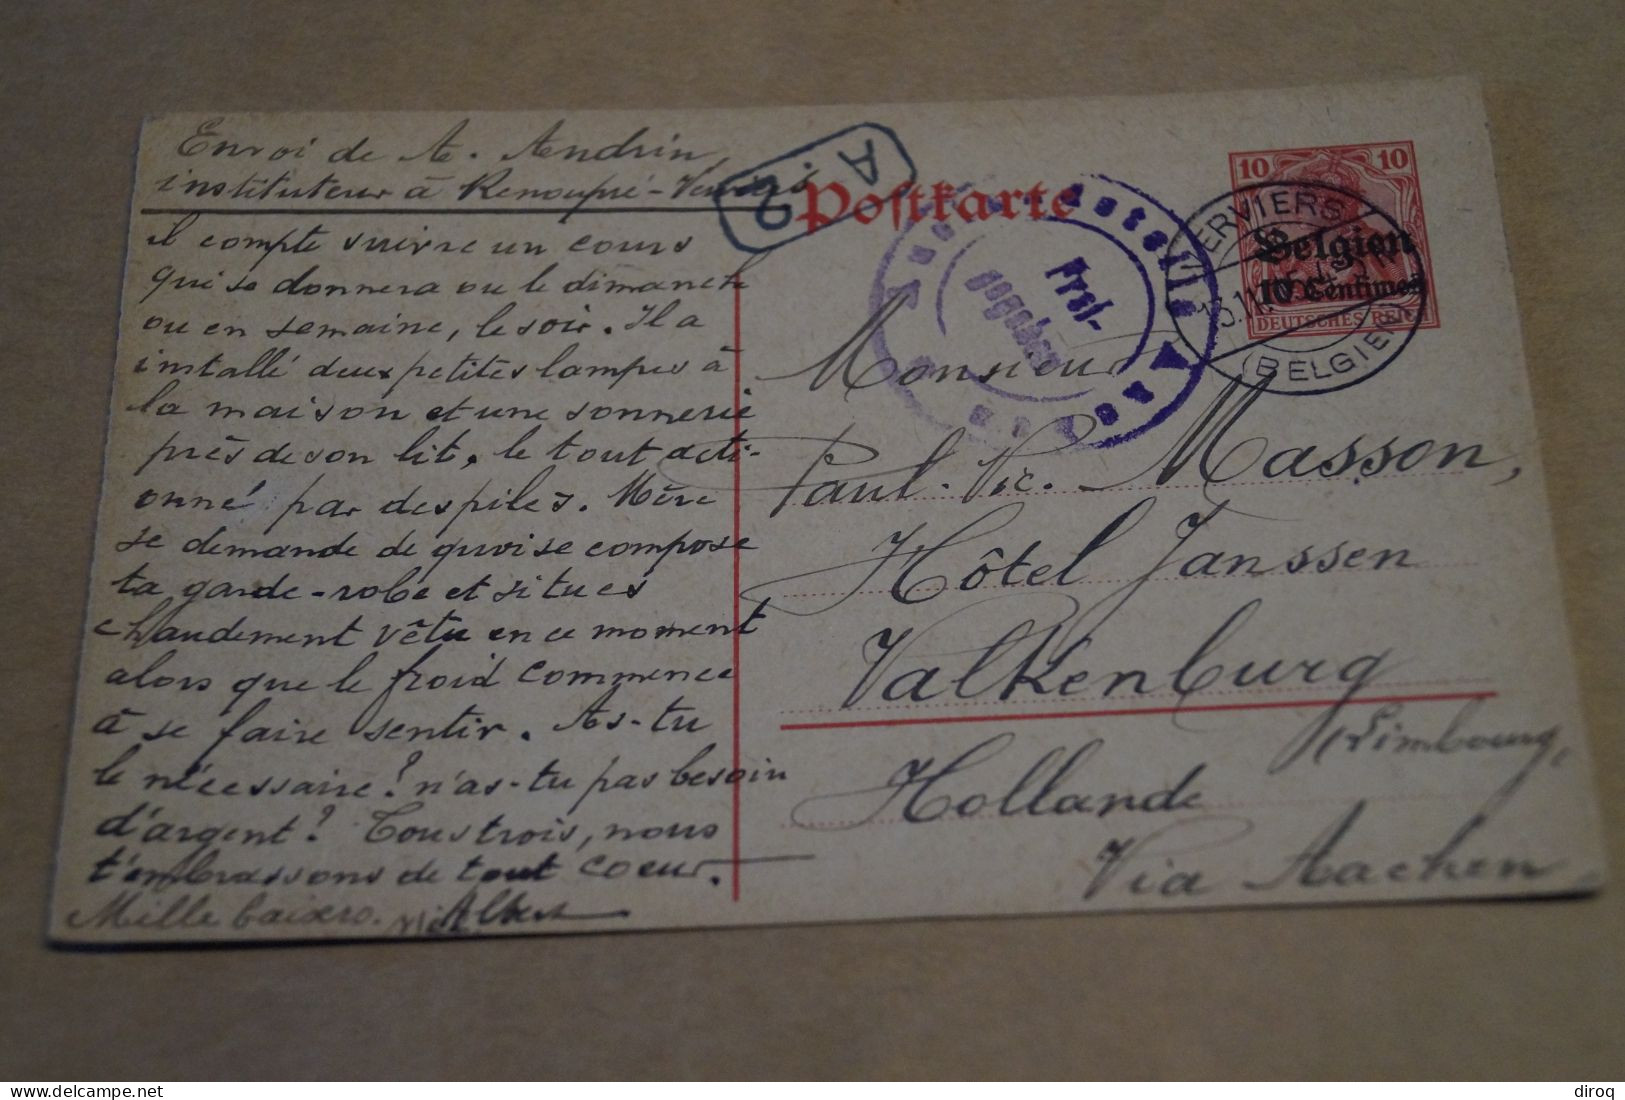 Envoi de A. Andrin,
instituteur à Renoupré-Verviers
il compte suivre un cours
qui se donnera ou le dimanche
ou en semaine, le soir. Il a
installé deux petites lampes à
la maison et une sonnerie
près de son lit, le tout acti-
onné par des piles. Mère
se demande de quoi se compose
ta garde-robe et si tu es
chaudement vêtu en ce moment
alors que le froid commence
à se faire sentir. As-tu
le nécessaire? n'as-tu pas besoin
d'argent? Tous trois, nous
t'embrassons de tout coeur.
Mille baisers. Albert
A. 2
Postkarte
Aachen
Prüf-
gegeben
10 10
Belgien
10 Centimes
DEUTSCHES REICH
VERVIERS
(BELGIEN)
Monsieur
Paul-Vic. Masson,
Hôtel Janssen
Valkenburg
(Limbourg,
Hollande
Via Aachen
diroq